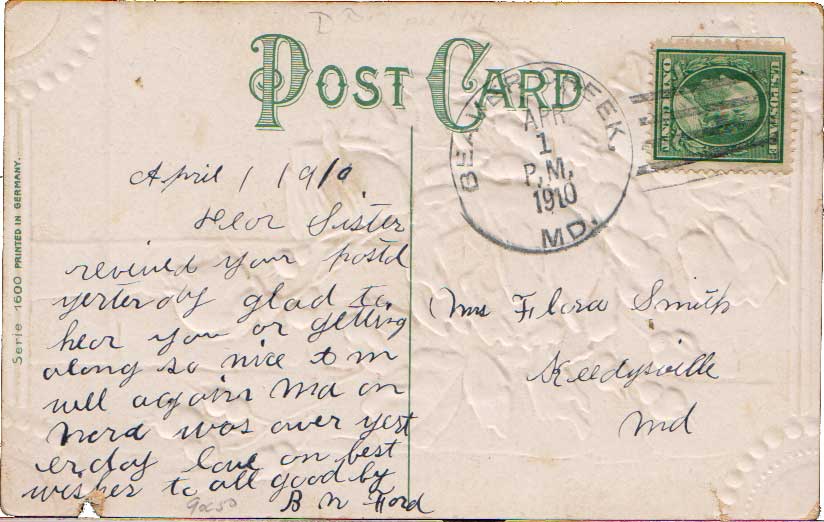 POST CARD
BEAVER CREEK,
APR
1
P.M.
1910
MD.
U.S. POSTAGE
ONE CENT
Serie 1600 PRINTED IN GERMANY.
April 1 1910
Dear Sister
revined your postd
yesterday glad to
hear you or getting
along so nice
well again Ma on
was over yest
erday love on best
wishes to all good by
B N Ford
Mrs Flora Smith
Keedysville
Md